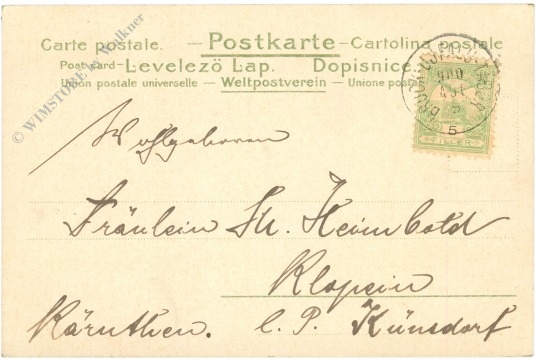 Carte postale. — Postkarte — Cartolina postale
Postcard — Levelező Lap. Dopisnice
Union postale universelle — Weltpostverein — Unione postale
© WIMSTORE - Walkner
900
5
FILLER
Wohlgeboren
Fräulein Th. Heimbold
Klopein
Kärnthen. l. P. Künsdorf